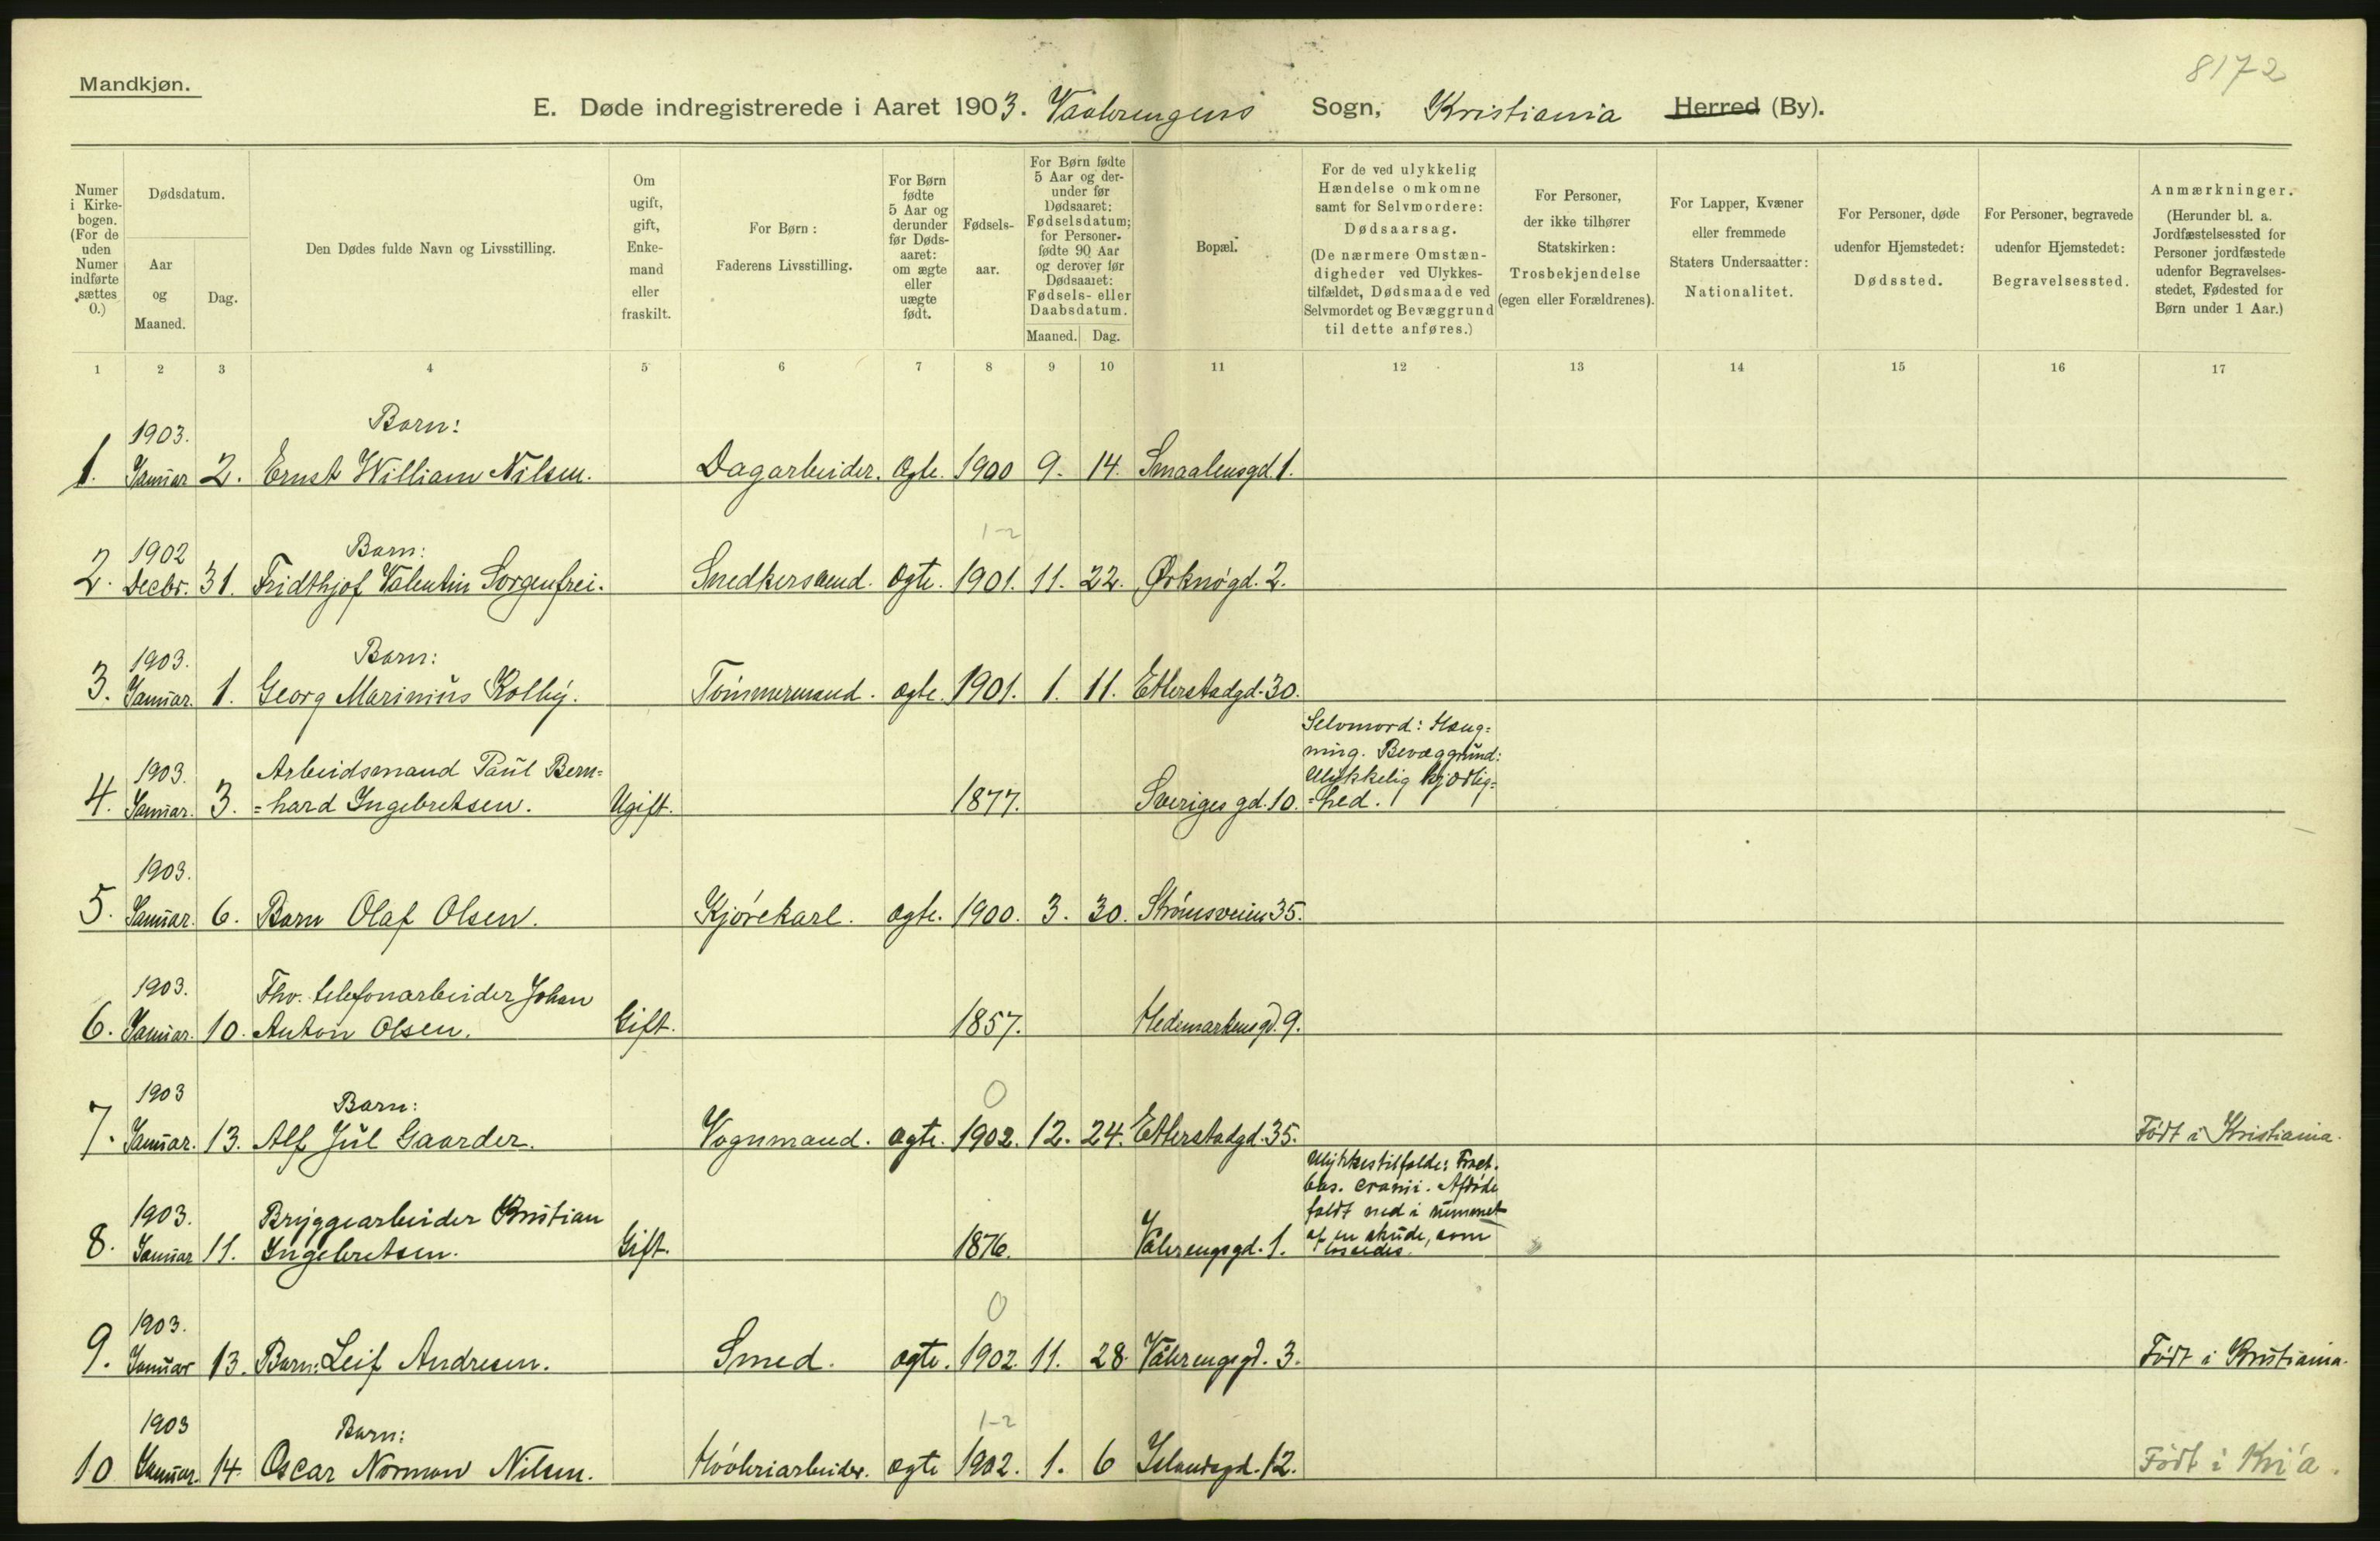 Mandkjøn.
8172
E. Døde indregistrerede i Aaret 1903. Vaalerengens Sogn, Kristiania Herred (By).
Numer i Kirkebogen. (For de uden Numer indførte sættes 0.)
Dødsdatum.
Aar og Maaned.
Dag.
Den Dødes fulde Navn og Livsstilling.
Om ugift, gift, Enkemand eller fraskilt.
For Børn: Faderens Livsstilling.
For Børn fødte 5 Aar og derunder før Dødsaaret: om ægte eller uægte født.
Fødselsaar.
For Børn fødte 5 Aar og derunder før Dødsaaret: Fødselsdatum; for Personer fødte 90 Aar og derover før Dødsaaret: Fødsels- eller Daabsdatum.
Maaned. Dag.
Bopæl.
For de ved ulykkelig Hændelse omkomne samt for Selvmordere: Dødsaarsag. (De nærmere Omstændigheder ved Ulykkestilfældet, Dødsmaade ved Selvmordet og Bevæggrund til dette anføres.)
For Personer, der ikke tilhører Statskirken: Trosbekjendelse (egen eller Forældrenes).
For Lapper, Kvæner eller fremmede Staters Undersaatter: Nationalitet.
For Personer, døde udenfor Hjemstedet: Dødssted.
For Personer, begravede udenfor Hjemstedet: Begravelsessted.
Anmærkninger. (Herunder bl. a. Jordfæstelsessted for Personer jordfæstede udenfor Begravelsesstedet, Fødested for Børn under 1 Aar.)
1 2 3 4 5 6 7 8 9 10 11 12 13 14 15 16 17
1903. Barn:
1. Januar 2. Ernst William Nilsen. Dagarbeider. ægte. 1900 9. 14. Smaalensgd. 1.
1902 Barn: 1-2
2. Decbr. 31. Fridthjof Valentin Sorgenfrei. Snedkersvend. ægte. 1901. 11. 22. Ørknøgd. 2.
1903. Barn:
3. Januar. 1. Georg Marinius Kolby. Tömmermand. ægte. 1901. 1. 11. Etterstadgd. 30.
Selvmord: Hæng=
ning. Bevæggrund:
1903. Arbeidsmand Paul Bern= Ulykkelig kjærlig=
4. Januar. 3. =hard Ingebretsen. Ugift. 1877. Sveriges gd. 10. =hed.
1903.
5. Januar. 6. Barn Olaf Olsen. Kjørekarl. ægte. 1900. 3. 30. Strømsveien 35.
1903. Fhv. telefonarbeider Johan
6. Januar. 10. Anton Olsen. Gift. 1857. Hedemarkensgd. 9.
1903 Barn: 0
7. Januar. 13. Alf Jul Gaarder. Vognmand. ægte. 1902. 12. 24. Etterstadgd. 35. Født i Kristiania.
Ulykkestilfælde: Fract.
bas. cranii. Afdøde
1903. Bryggearbeider Kristian faldt ned i rummet
8. Januar 11. Ingebretsen. Gift. 1876. Vålerengsgd. 1. af en skude, som
lossedes.
1903. 0
9. Januar 13. Barn: Leif Andresen. Smed. ægte. 1902. 11. 28. Vålerengsgd. 3. Født i Kristiania.
1903 Barn: 1-2
10 Januar. 14. Oscar Norman Nilsen. Høvleriarbeider. ægte 1902. 1. 6 Islandsgd. 12. Født i Kria.